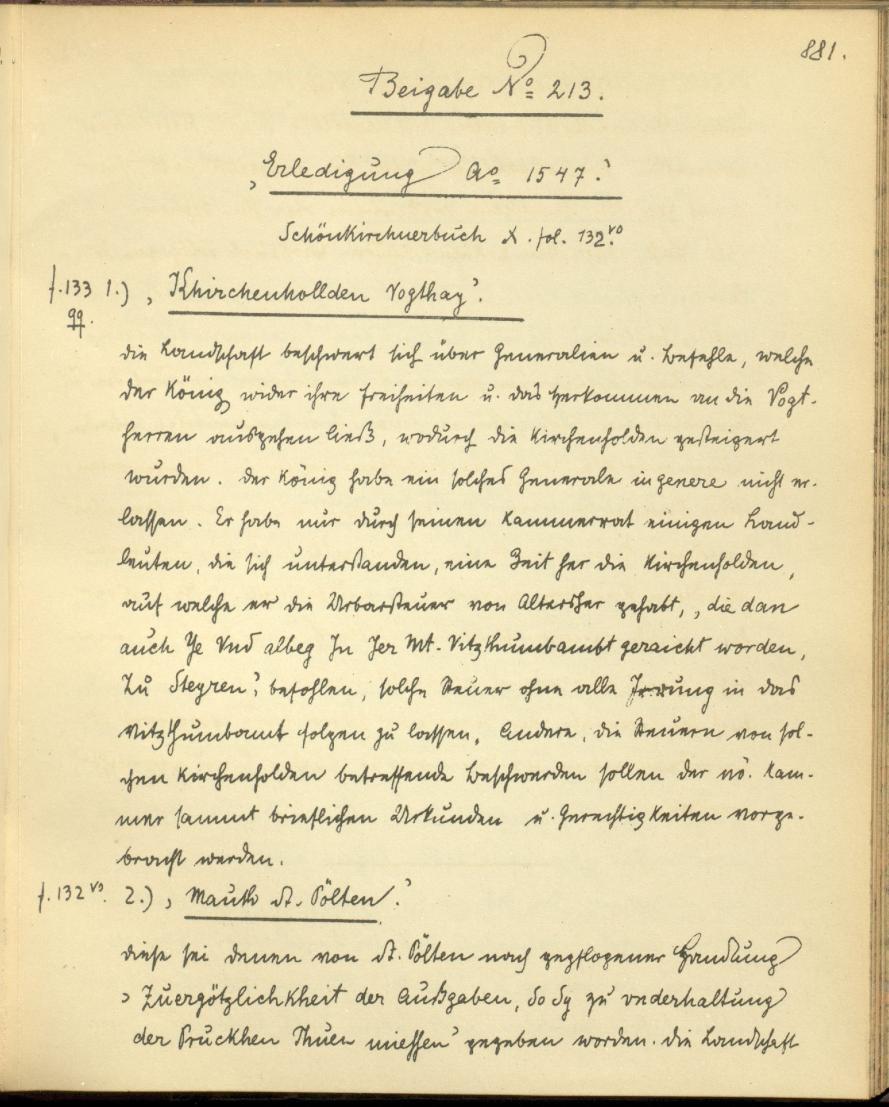 881.
Beigabe No 213.
„Erledigung Ao 1547.“
Schönkirchnerbuch X. fol. 132 vo.
f. 133 1.) „Khirchenhollden Vogthay“.
qq.
die Landschaft beschwert sich über Generalien u. Befehle, welche
der König wider ihre Freiheiten u. das Herkommen an die Vogt-
herren ausgehen ließ, wodurch die Kirchenholden gesteigert
wurden. Der König habe ein solches Generale in genere nicht er-
lassen. Er habe nur durch seinen Kammerrat einigen Land-
leuten, die sich unterstanden, eine Zeit her die Kirchenholden,
auf welche er die Urbarsteuer von Altersher gehabt, „die dan
auch Ye Vnd albeg In Jer Mt. Vitzthumbambt geraicht worden,
zu Steyren“, befohlen, solche Steuer ohne alle Irrung in das
Vitzthumbamt folgen zu lassen. Andere, die Steuern von sol-
chen Kirchenholden betreffende Beschwerden sollen der nö. Kam-
mer sammt brieflichen Urkunden u. Gerechtigkeiten vorge-
bracht werden.
f. 132 vo. 2.) „Mauth St. Pölten.“
diese sei denen von St. Pölten nach gepflogener Handlung
„Zuergötzlichkheit der Außgaben, So Sy zu vnderhaltung
der Pruckhen Thuen miessen“ gegeben worden. Die Landschaft